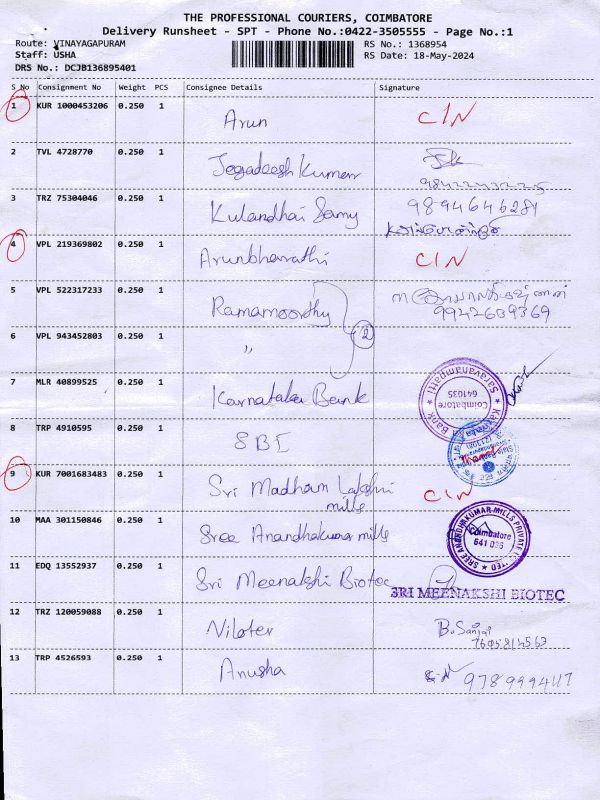 THE PROFESSIONAL COURIERS, COIMBATORE
Delivery Runsheet - SPT - Phone No.:0422-3505555 - Page No.:1
Route: VINAYAGAPURAM
Staff: USHA
DRS No.: DCJB136895401
RS No.: 1368954
RS Date: 18-May-2024
S No Consignment No Weight PCS Consignee Details Signature
1 KUR 1000453206 0.250 1 Arun C/N
2 TVL 4728770 0.250 1 Jegadeesh Kumar
3 TRZ 75304046 0.250 1 Kulandhai Samy 9894646281
4 VPL 219369802 0.250 1 Arunbharathi C/N
5 VPL 522317233 0.250 1 Ramamoorthy
9942639369
6 VPL 943452803 0.250 1 " 2
7 MLR 40899525 0.250 1 Karnataka Bank
Bank * Saravanampatti *
Coimbatore
641035
8 TRP 4910595 0.250 1 SBI
9 KUR 7001683483 0.250 1 Sri Madham Lakshmi C/N
mills
10 MAA 301150846 0.250 1 Sree Anandhakumar mills
SREE ANANDHAKUMAR MILLS PRIVATE LIMITED
Coimbatore
641 035
11 EDQ 13552937 0.250 1 Sri Meenakshi Biotec SRI MEENAKSHI BIOTEC
12 TRZ 120059088 0.250 1 B. Sanjai
13 TRP 4526593 0.250 1 Anusha